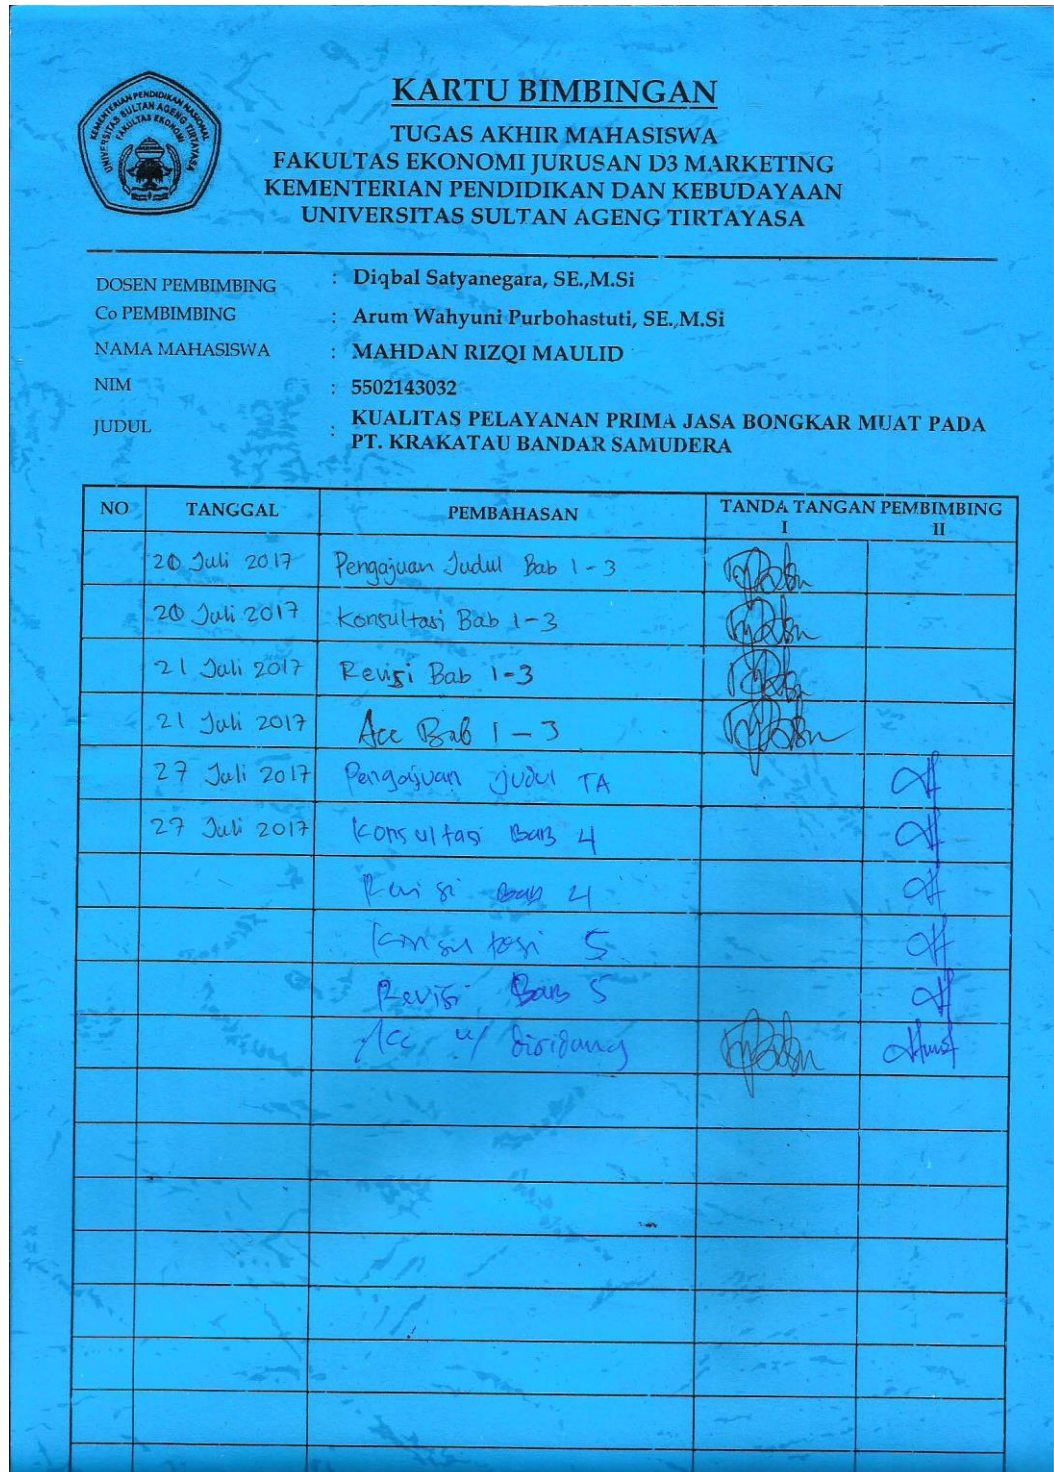 KEMENTERIAN PENDIDIKAN NASIONAL
UNIVERSITAS SULTAN AGENG TIRTAYASA
FAKULTAS EKONOMI
KARTU BIMBINGAN
TUGAS AKHIR MAHASISWA
FAKULTAS EKONOMI JURUSAN D3 MARKETING
KEMENTERIAN PENDIDIKAN DAN KEBUDAYAAN
UNIVERSITAS SULTAN AGENG TIRTAYASA
DOSEN PEMBIMBING : Diqbal Satyanegara, SE.,M.Si
Co PEMBIMBING : Arum Wahyuni Purbohastuti, SE.,M.Si
NAMA MAHASISWA : MAHDAN RIZQI MAULID
NIM : 5502143032
JUDUL : KUALITAS PELAYANAN PRIMA JASA BONGKAR MUAT PADA
PT. KRAKATAU BANDAR SAMUDERA
NO TANGGAL PEMBAHASAN TANDA TANGAN PEMBIMBING
I II
20 Juli 2017 Pengajuan Judul Bab 1-3
20 Juli 2017 Konsultasi Bab 1-3
21 Juli 2017 Revisi Bab 1-3
21 Juli 2017 Acc Bab 1-3
27 Juli 2017 Pengajuan judul TA
27 Juli 2017 Konsultasi Bab 4
Revisi Bab 4
Konsultasi 5
Revisi Bab 5
Acc u/ disidang